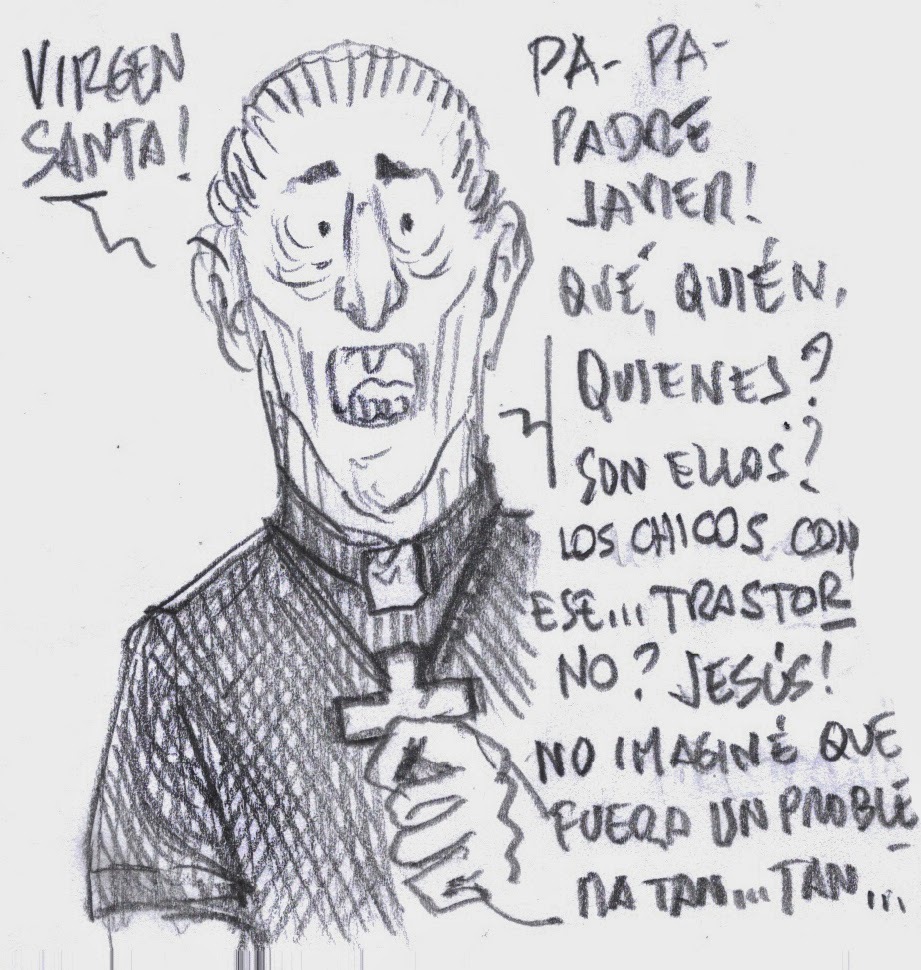 VIRGEN
SANTA!
PA- PA-
PADRE
JAVIER!
QUÉ, QUIÉN,
QUIENES?
SON ELLOS?
LOS CHICOS CON
ESE... TRASTOR
NO? JESÚS!
NO IMAGINÉ QUE
FUERA UN PROBLE
MA TAN... TAN...